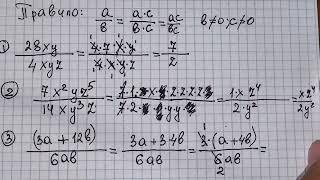 Правило: a/в = a·c/в·c = ac/вc в≠0; c≠0
① 28xy/4xyz = 4·7·x·y/4·x·y·z = 7/z
② 7x²yz⁵/14xy³z = 7·1·x·x·y·z·z·z·z·z/7·2·x·y·y·y·z = 1·x·z⁴/2·y² = xz⁴/2y²
③ (3a+12в)/6aв = 3a+3·4в/6aв = 3·(a+4в)/6aв =
2